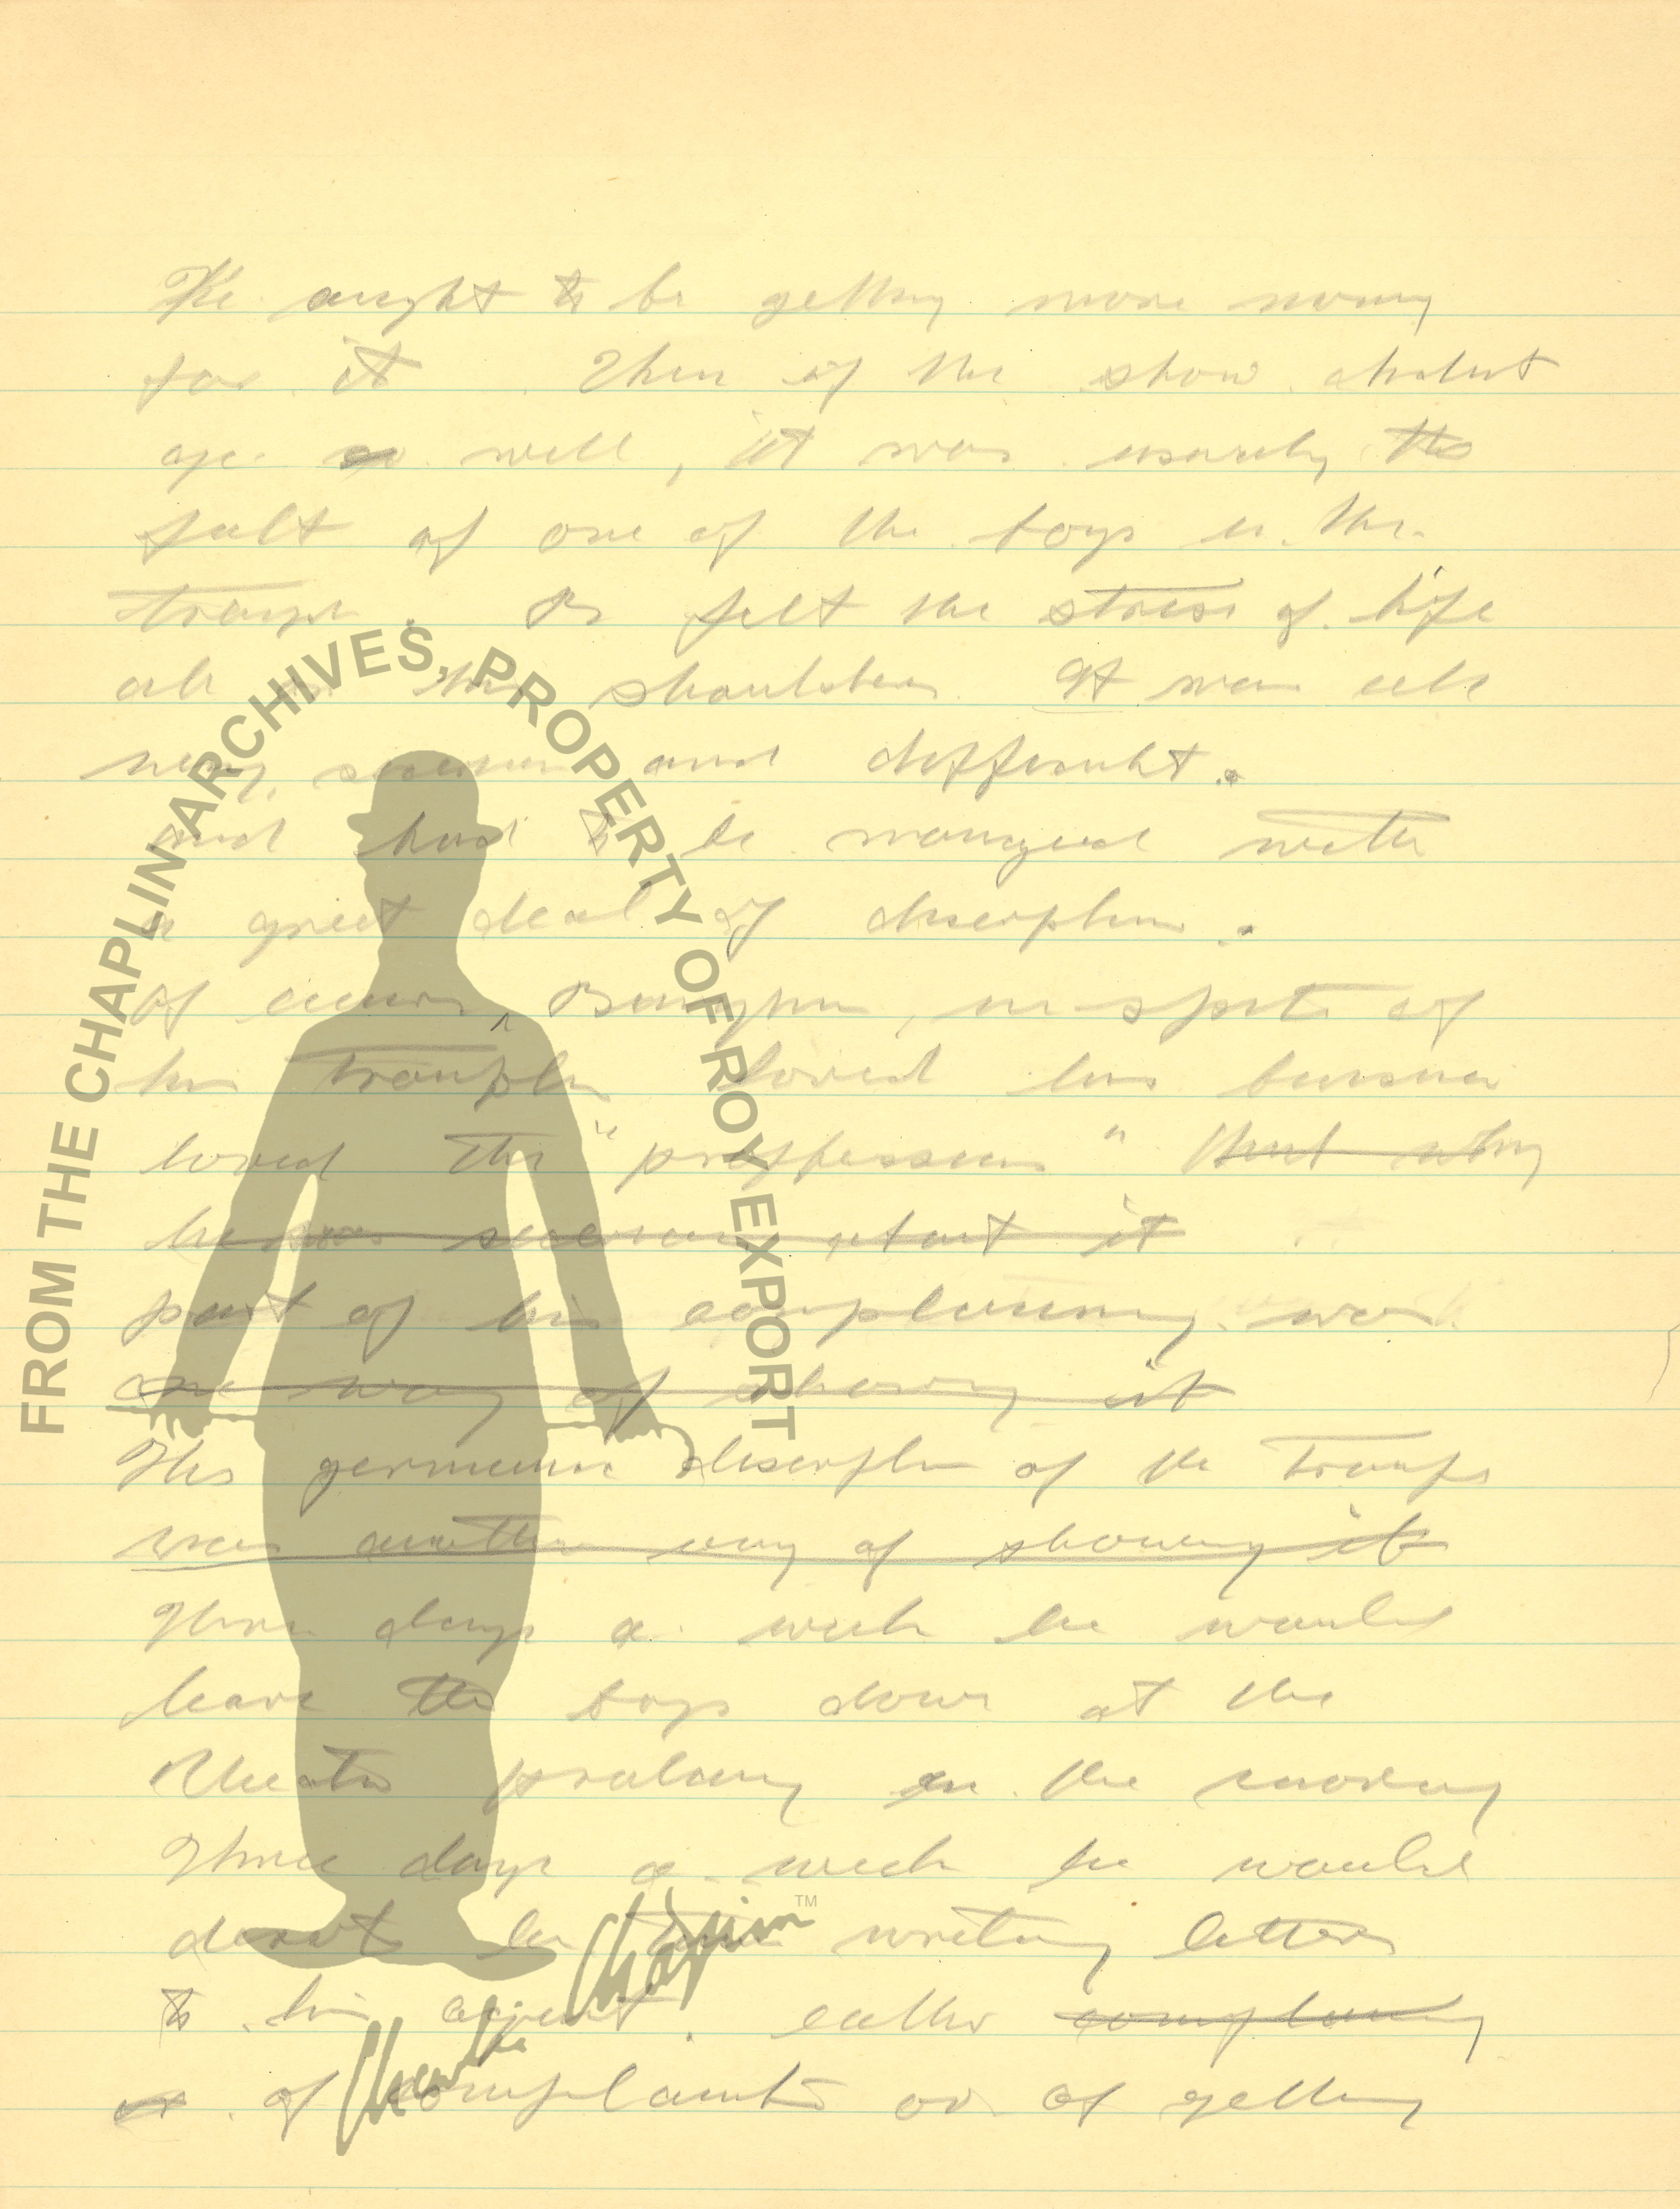 He aught to be getting more money
for it. Then if the show didnt
go so well, it was usualy the
falt of one of the boys in the
troupe. B felt the stress of life
all on his shoulders. It was all
very, and difficult.
and had to be managed with
a great deal of disciplin.
Of course, in-spite of
his troupe loved his buisness
loved the "proffession" that why
he was about it
part of his complaining was
one way of showing it
This germanic disciplin of the troupe
was another way of showing it
Three days a week he would
have the boys down at the
theatre in the morning
Three days a week he would
devote his time writing letters
to his agent. eather complaining
of complaints or of getting
FROM THE CHAPLIN ARCHIVES, PROPERTY OF ROY EXPORT
Charlie Chaplin™